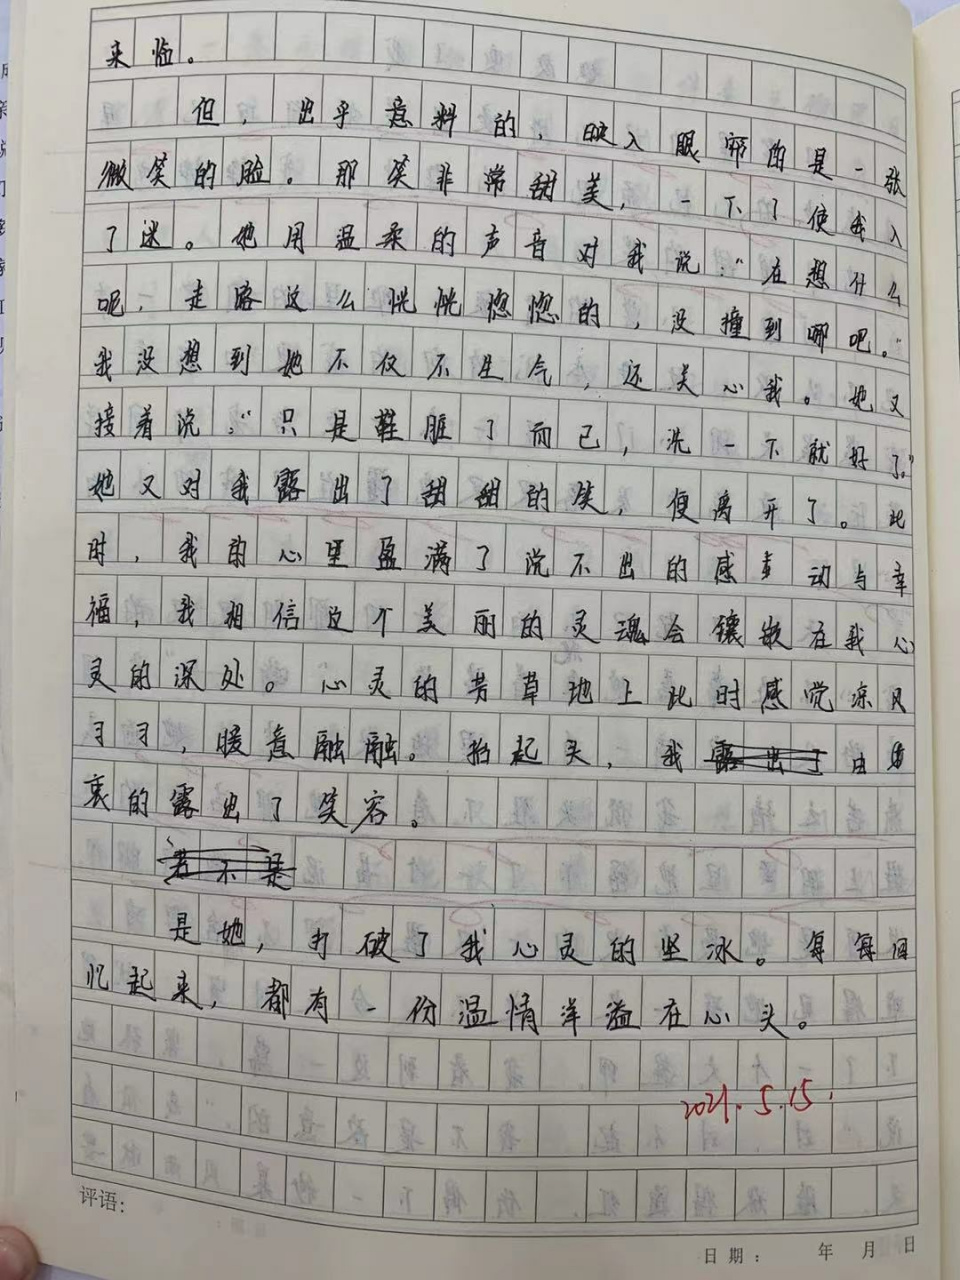 来临。
但，出乎意料的，映入眼帘的是一张
微笑的脸。那笑非常甜美，一下了使我入
了迷。她用温柔的声音对我说：“在想什么
呢，走路这么恍恍惚惚的，没撞到哪吧。”
我没想到她不仅不生气，还关心我。她又
接着说：“只是鞋脏了而已，洗一下就好了。”
她又对我露出了甜甜的笑，便离开了。此
时，我的心里盈满了说不出的感动与幸
福，我相信这个美丽的灵魂会镶嵌在我心
灵的深处。心灵的芳草地上此时感觉凉风
习习，暖意融融。抬起头，我露出了由
衷的露出了笑容。
若不是
是她，打破了我心灵的坚冰。每每回
忆起来，都有一份温情洋溢在心头。
2021.5.15.
评语：
日期： 年 月 日